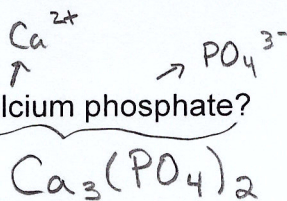 Ca²⁺
PO₄³⁻
lcium phosphate?
Ca₃(PO₄)₂